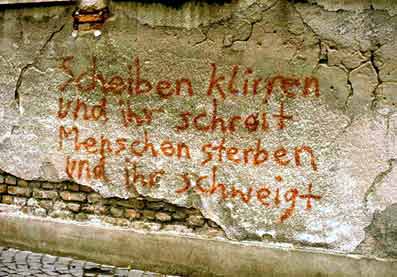 Scheiben klirren
und ihr schreit
Menschen sterben
und ihr schweigt